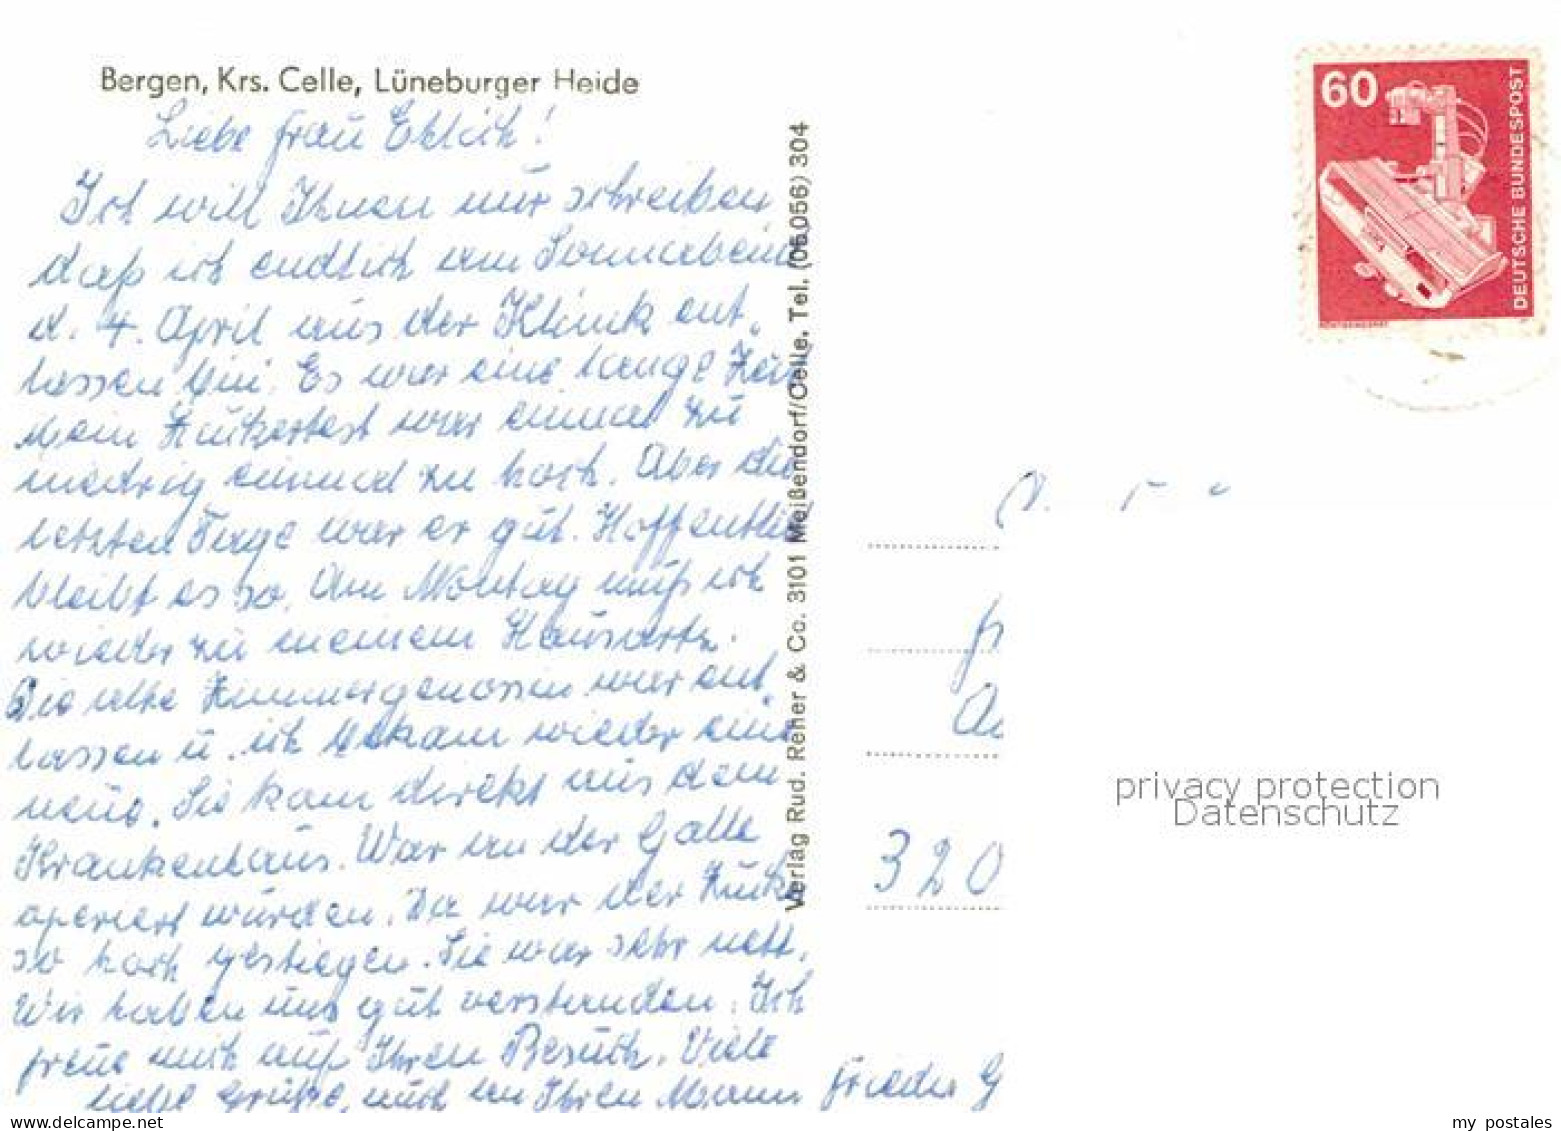 Bergen, Krs. Celle, Lüneburger Heide
Liebe Frau
Ich will Ihnen nur schreiben,
daß ich endlich am Sonnabend
d. 4. April aus der Klinik ent-
lassen bin. Es war eine lange Zeit
Mein Zuckertest war einmal zu
niedrig einmal zu hoch. Aber die
letzten Tage war er gut. Hoffentlich
bleibt es so. Am Montag muß ich
wieder zu meinem Hausarzt.
Die alte Zimmergenossin war ent-
lassen u. ich bekam wieder eine
neue. Sie kam direkt aus dem
Krankenhaus. War an der Galle
operiert würden. Da war der Zucker
so hoch gestiegen. Sie war sehr nett.
Wir haben uns gut verstanden. Ich
freue mich auf Ihren Besuch. Viele
liebe Grüße, auch an Ihren Mann Frieda G
Verlag Rud. Reher & Co. 3101 Meißendorf/Celle, Tel. (05056) 304
60
DEUTSCHE BUNDESPOST
320
privacy protection
Datenschutz
my postales